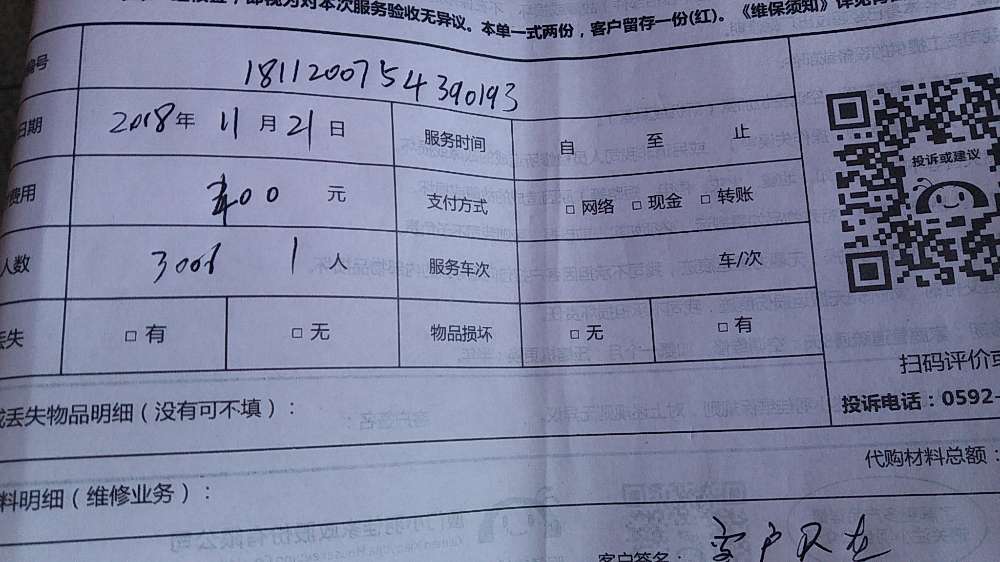 即视为对本次服务验收无异议。本单一式两份，客户留存一份(红)。《维保须知》详见背
编号 181120075439０193
日期 2018年 11月 21日 服务时间 自 至 止
费用 00 元 支付方式 □ 网络 □ 现金 □ 转账
投诉或建议
人数 1 人 服务车次 车/次
丢失 □ 有 □ 无 物品损坏 □ 无 □ 有
扫码评价或
或丢失物品明细（没有可不填）：
投诉电话：0592-
代购材料总额：
料明细（维修业务）：
客户签名： 客户不在